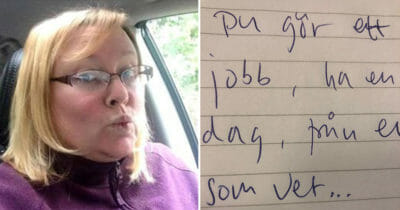 Du gör ett
jobb, ha en
dag, från en
som vet...